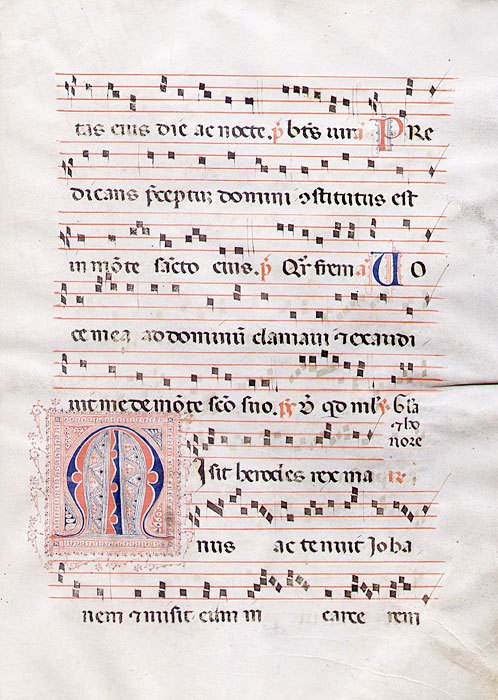 tas eius die ac nocte. p̄ bt̄s uir a PRe
dicans p̄ceptuȝ domini ꝯstitutus est
in mōte sancto eius. p̄ Qr̄ frem a Uo
ce mea ad dominū clamaui ⁊ exaudi
uit me de mōte scō suo. ꝟ qd ml̓
gl̄a ⁊ ho
nore
Misit herodes rex ma
nus ac tenuit Joha
nem ⁊ misit eum in carce rem